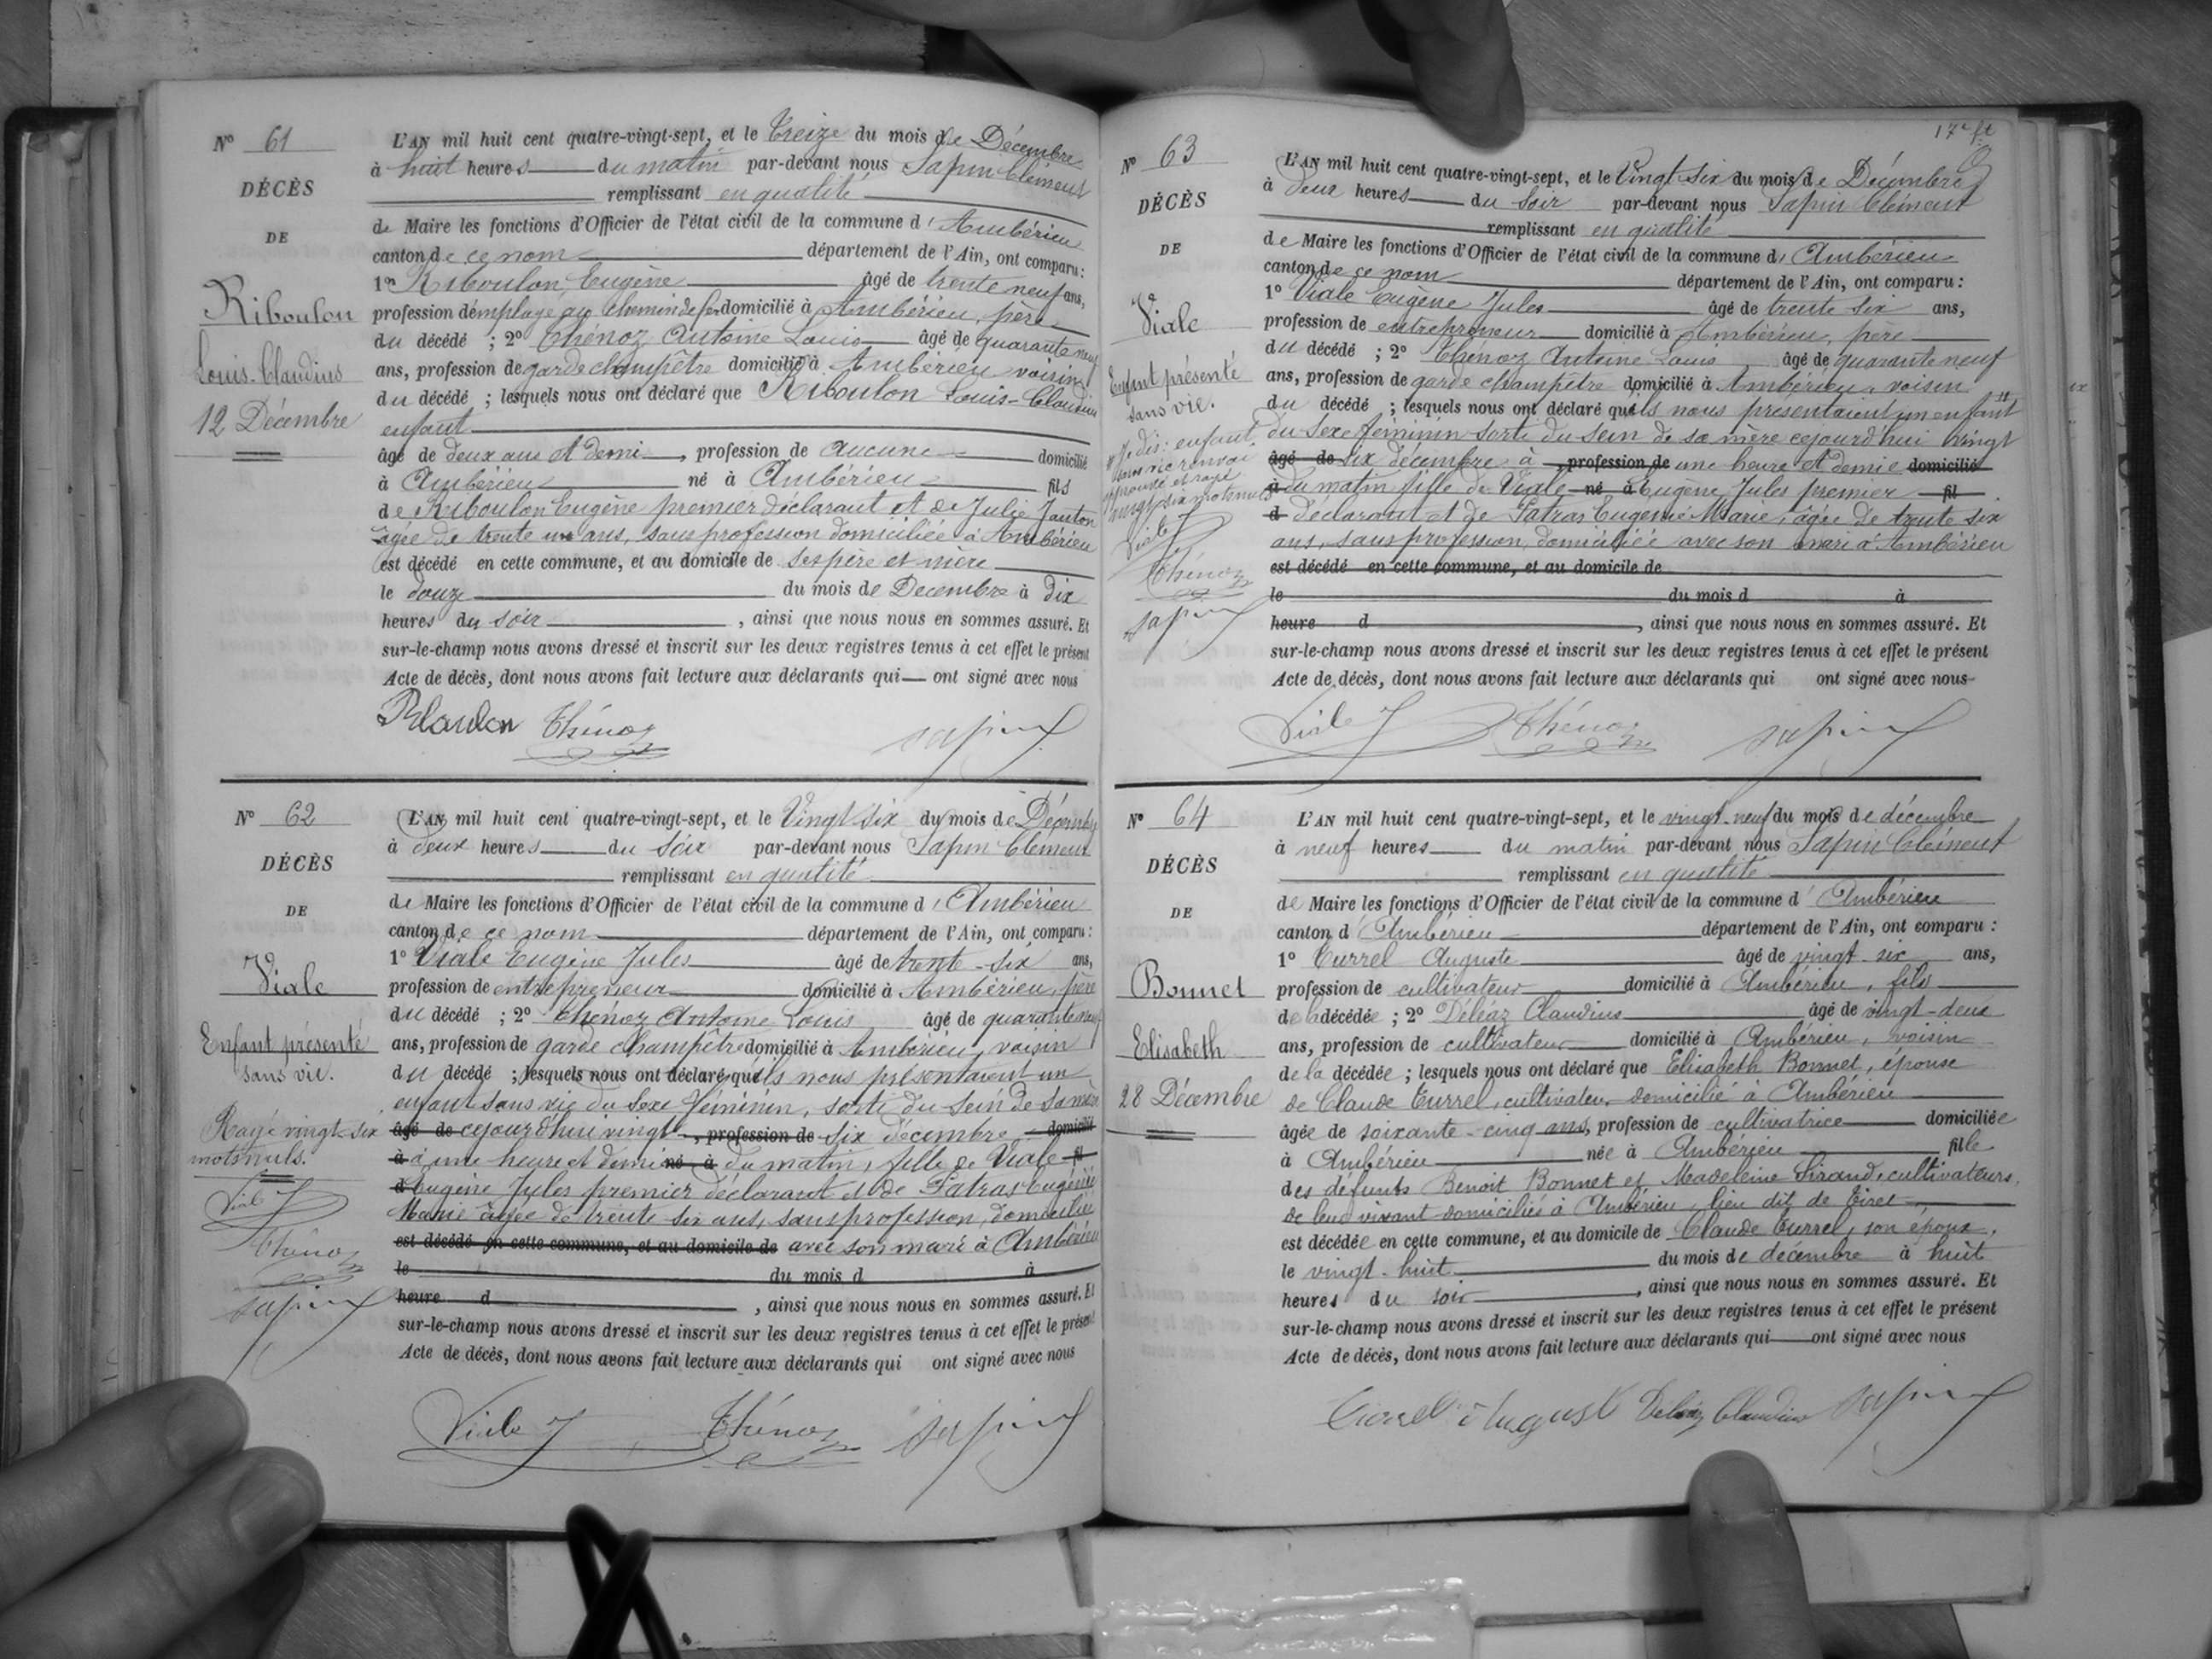 N° 61
DÉCÈS
DE
Riboulon
Louis-Claudius
12 Décembre
L'AN mil huit cent quatre-vingt-sept, et le Treize du mois de Décembre
à huit heures du matin par-devant nous Sapin Clément
remplissant en qualité
de Maire les fonctions d'Officier de l'état civil de la commune d'Ambérieu
canton de ce nom département de l'Ain, ont comparu :
1° Riboulon Eugène âgé de trente neuf ans,
profession d'employé au chemin de fer domicilié à Ambérieu, père
du décédé ; 2° Thénoz Antoine Louis âgé de quarante neuf
ans, profession de garde champêtre domicilié à Ambérieu voisin
du décédé ; lesquels nous ont déclaré que Riboulon Louis-Claudius
enfant
âgé de deux ans et demi, profession de aucune domicilié
à Ambérieu né à Ambérieu fils
de Riboulon Eugène premier déclarant et de Julie Janton
âgée de trente un ans, sans profession domiciliée à Ambérieu
est décédé en cette commune, et au domicile de ses père et mère
le douze du mois de Décembre à dix
heures du soir, ainsi que nous nous en sommes assuré. Et
sur-le-champ nous avons dressé et inscrit sur les deux registres tenus à cet effet le présent
Acte de décès, dont nous avons fait lecture aux déclarants qui ont signé avec nous
Riboulon Thénoz Sapin
N° 62
DÉCÈS
DE
Viale
Enfant présenté
sans vie.
Rayé vingt-six
mots nuls.
Viale J
Thénoz
Sapin
L'AN mil huit cent quatre-vingt-sept, et le Vingt six du mois de Décembre
à deux heures du soir par-devant nous Sapin Clément
remplissant en qualité
de Maire les fonctions d'Officier de l'état civil de la commune d'Ambérieu
canton de ce nom département de l'Ain, ont comparu :
1° Viale Eugène Jules âgé de trente-six ans,
profession de entrepreneur domicilié à Ambérieu, père
du décédé ; 2° Thénoz Antoine Louis âgé de quarante neuf
ans, profession de garde champêtre domicilié à Ambérieu, voisin
du décédé ; lesquels nous ont déclaré qu'ils nous présentaient un
enfant sans vie du sexe féminin, sorti du sein de sa mère
âgé de cejourd'hui vingt, profession de six décembre domicilié
à à une heure et demie né à du matin, fille de Viale fil
d Eugène Jules premier déclarant et de Patras Eugénie
Marie âgée de trente six ans, sans profession, domiciliée
est décédé en cette commune, et au domicile de avec son mari à Ambérieu
le du mois d à
heure d , ainsi que nous nous en sommes assuré. Et
sur-le-champ nous avons dressé et inscrit sur les deux registres tenus à cet effet le présent
Acte de décès, dont nous avons fait lecture aux déclarants qui ont signé avec nous
Viale J Thénoz Sapin
17e ft
N° 63
DÉCÈS
DE
Viale
Enfant présenté
sans vie.
# Je dis: enfant
sans vie renvoi
approuvé et rayé
vingt six mots nuls
Viale J
Thénoz
Sapin
L'AN mil huit cent quatre-vingt-sept, et le Vingt six du mois de Décembre
à deux heures du soir par-devant nous Sapin Clément
remplissant en qualité
de Maire les fonctions d'Officier de l'état civil de la commune d'Ambérieu
canton de ce nom département de l'Ain, ont comparu :
1° Viale Eugène Jules âgé de trente six ans,
profession de entrepreneur domicilié à Ambérieu, père
du décédé ; 2° Thénoz Antoine Louis âgé de quarante neuf
ans, profession de garde champêtre domicilié à Ambérieu, voisin
du décédé ; lesquels nous ont déclaré qu'ils nous présentaient un enfant #
du sexe féminin sorti du sein de sa mère cejourd'hui vingt
âgé de six décembre à , profession de une heure et demie domicilié
à du matin fille de Viale né à Eugène Jules premier fil
d déclarant et de Patras Eugénie Marie, âgée de trente six
ans, sans profession, domiciliée avec son mari à Ambérieu
est décédé en cette commune, et au domicile de
le du mois d à
heure d , ainsi que nous nous en sommes assuré. Et
sur-le-champ nous avons dressé et inscrit sur les deux registres tenus à cet effet le présent
Acte de décès, dont nous avons fait lecture aux déclarants qui ont signé avec nous
Viale J Thénoz Sapin
N° 64
DÉCÈS
DE
Bonnet
Elisabeth
28 Décembre
L'AN mil huit cent quatre-vingt-sept, et le vingt-neuf du mois de décembre
à neuf heures du matin par-devant nous Sapin Clément
remplissant en qualité
de Maire les fonctions d'Officier de l'état civil de la commune d'Ambérieu
canton d'Ambérieu département de l'Ain, ont comparu :
1° Turrel Auguste âgé de vingt-six ans,
profession de cultivateur domicilié à Ambérieu, fils
de la décédée ; 2° Déléaz Claudius âgé de vingt-deux
ans, profession de cultivateur domicilié à Ambérieu, voisin
de la décédée ; lesquels nous ont déclaré que Elisabeth Bonnet, épouse
de Claude Turrel, cultivateur domicilié à Ambérieu
âgée de soixante-cinq ans, profession de cultivatrice domiciliée
à Ambérieu née à Ambérieu fille
des défunts Benoit Bonnet et Madeleine Sirand, cultivateurs,
de leur vivant domiciliés à Ambérieu, lieu dit de Tiret
est décédée en cette commune, et au domicile de Claude Turrel, son époux,
le vingt-huit du mois de décembre à huit
heures du soir, ainsi que nous nous en sommes assuré. Et
sur-le-champ nous avons dressé et inscrit sur les deux registres tenus à cet effet le présent
Acte de décès, dont nous avons fait lecture aux déclarants qui ont signé avec nous
Turrel August Deléaz Claudius Sapin